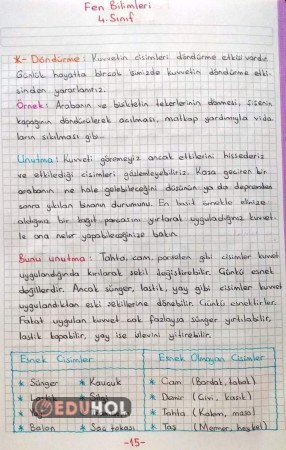 Fen Bilimleri
4. Sınıf
*- Döndürme : Kuvvetin cisimleri döndürme etkisi vardır.
Günlük hayatta birçok işimizde kuvvetin döndürme etki-
sinden yararlanırız.
Örnek: Arabanın ve bisikletin tekerlerinin dönmesi, şişenin
kapağının döndürülerek açılması, matkap yardımıyla vida
ların sıkılması gibi...
Unutma : Kuvveti göremeyiz ancak etkilerini hissederiz
ve etkilediği cisimleri gözlemleyebiliriz. Kaza geçiren bir
arabanın ne hale gelebileceğini düşünün ya da depremden
sonra yıkılan binanın durumunu. En basit örnekle elinize
aldığınız bir kağıt parçasını yırtarak uyguladığınız kuvvet
le ona neler yapabileceğinize bakın.
Bunu unutma : Tahta, cam, porselen gibi cisimler kuvvet
uygulandığında kırılarak şekil değiştirebilir. Çünkü esnek
değillerdir. Ancak sünger, lastik, yay gibi cisimler kuvvet
uygulandıktan eski şekillerine dönebilir. Çünkü esnektirler.
Fakat uygulan kuvvet çok fazlaysa sünger yırtılabilir,
lastik kopabilir, yay ise işlevini yitirebilir.
Esnek Cisimler
Esnek Olmayan Cisimler
* Sünger * Kauçuk
* Cam (Bardak, tabak)
* Lastik
* Demir (Çivi, kaşık)
* Tahta (Kalem, masa)
* Balon * Saç tokası
* Taş (Mermer, heykel)
EĞUHOL
-15-